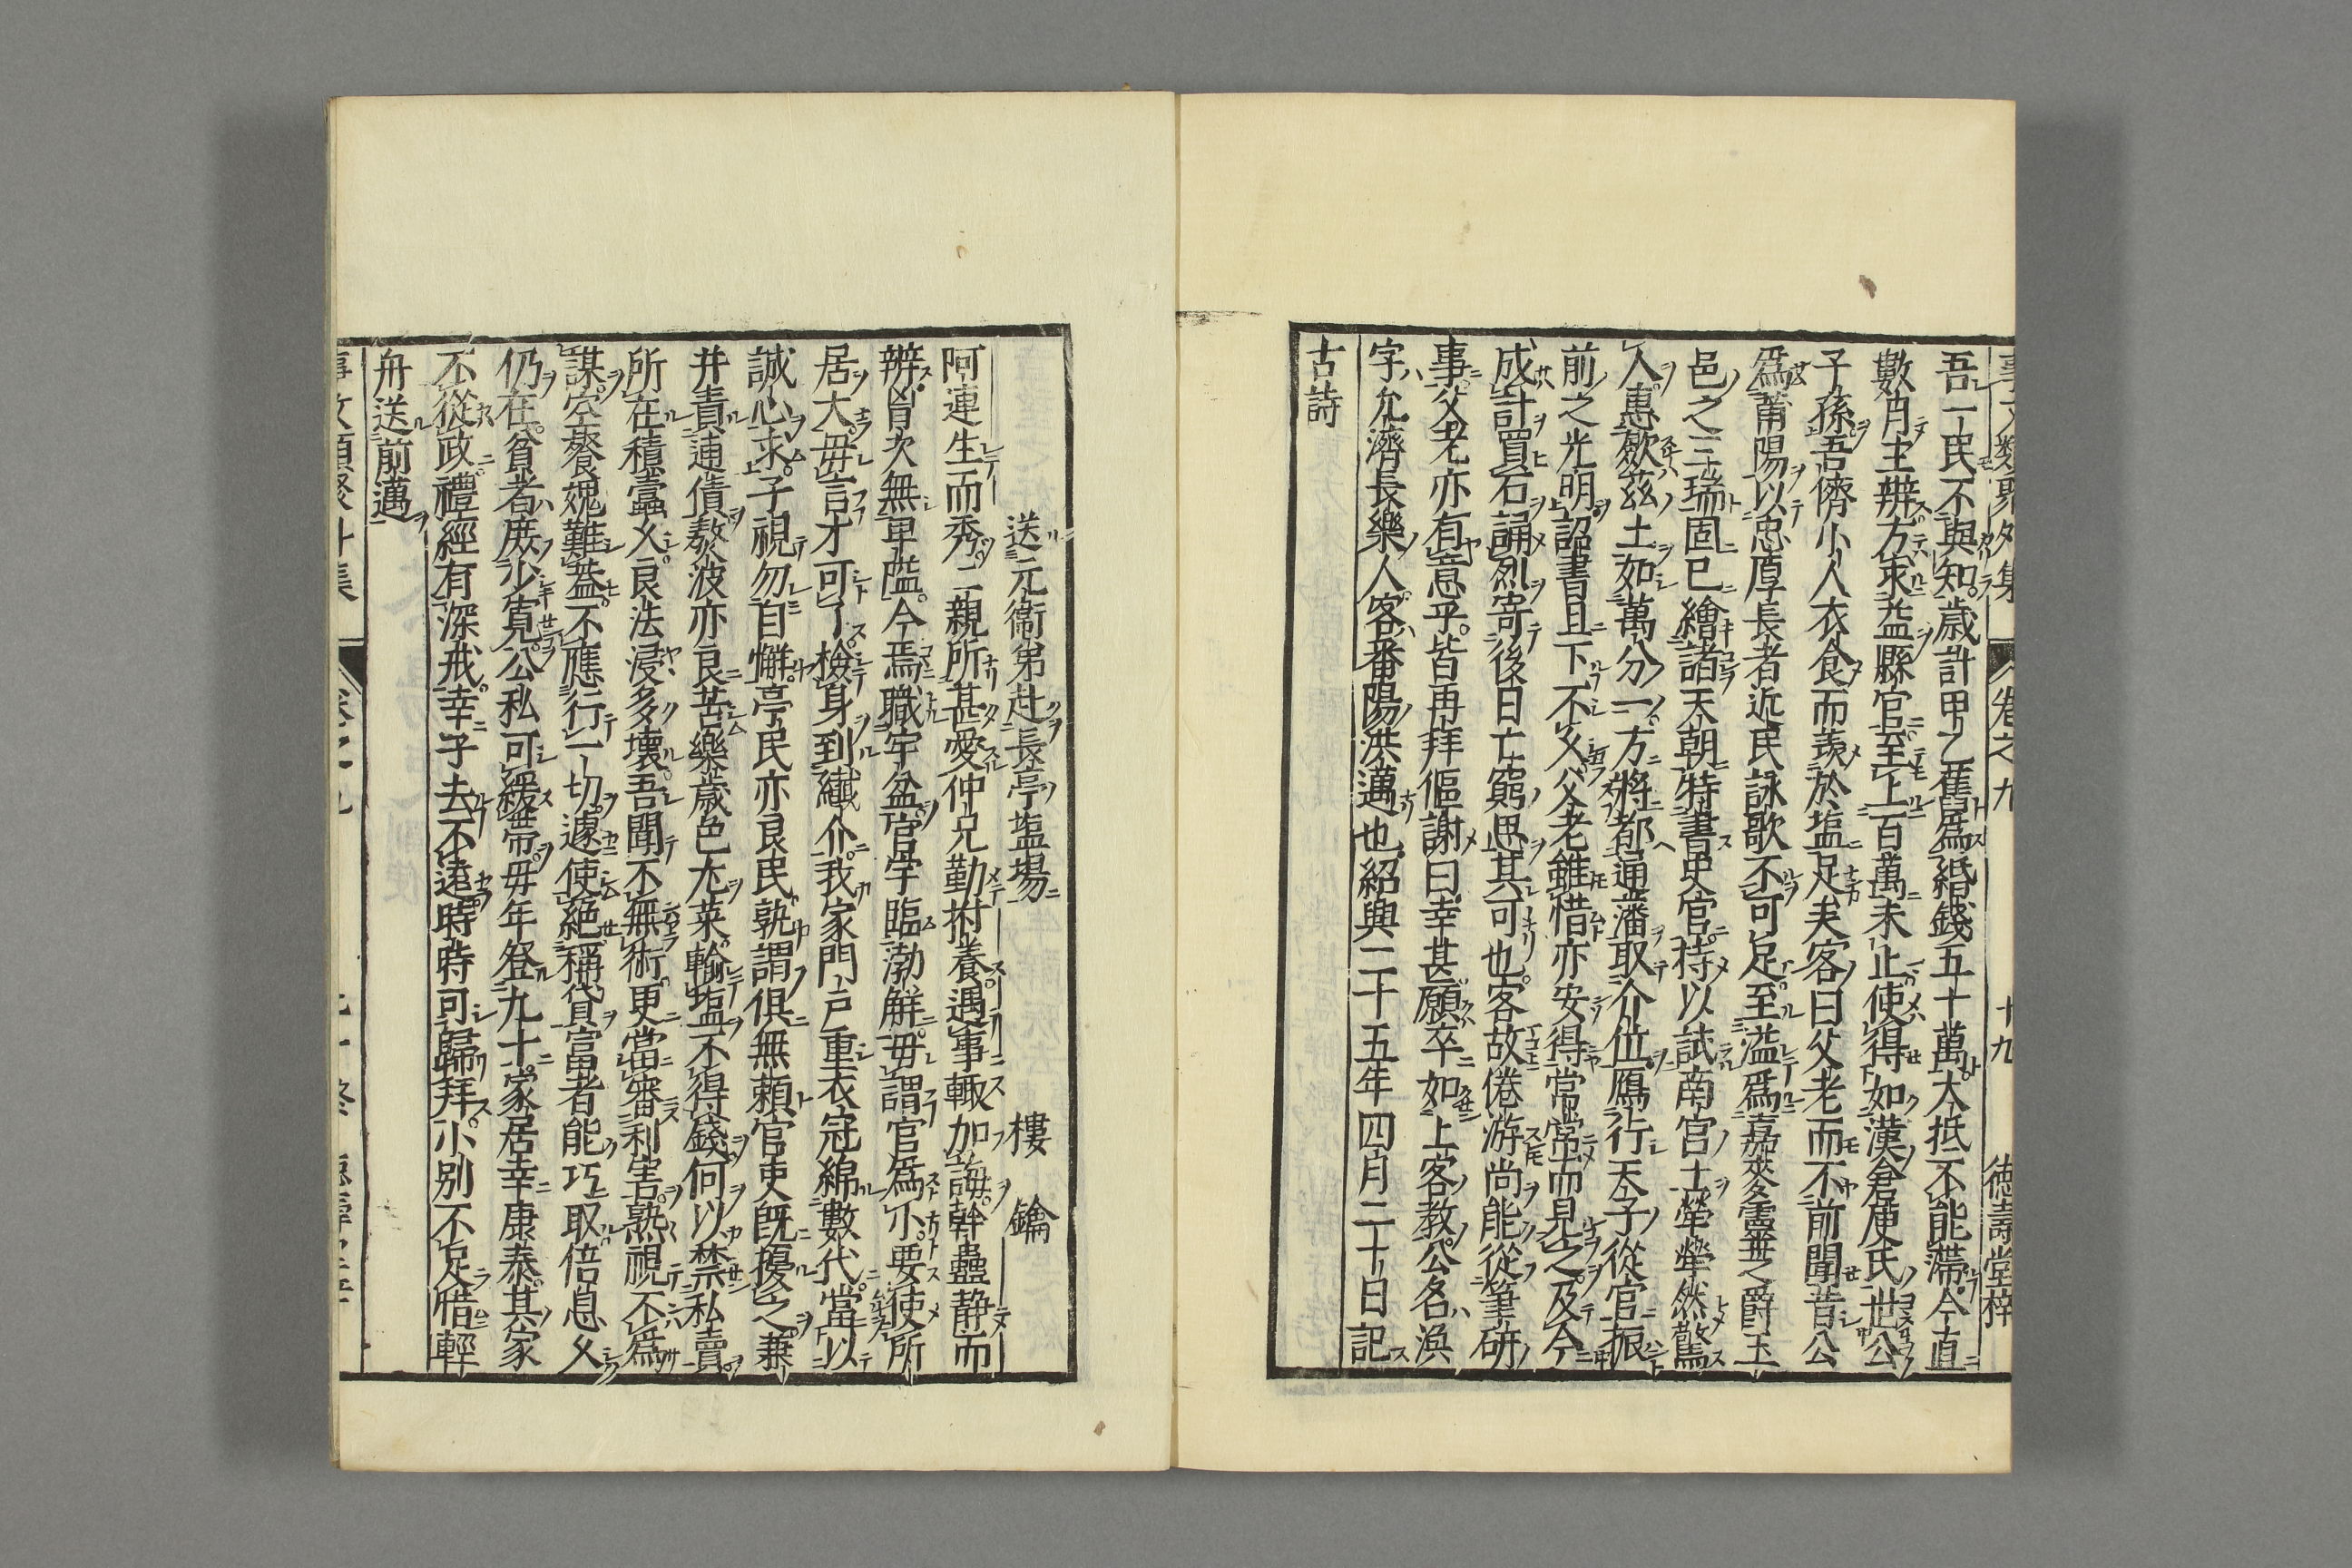 吾一民不與知歲計甲乙舊爲緡錢五十萬大抵不能滯今直
數月主辨方求益縣官至上百萬未止使得如漢倉庾氏世公
子孫吾儕小人衣食而羨於塩足夫客曰父老而不前聞昔公
爲莆陽以忠厚長者近民詠歌不可足至溢爲嘉麥靈芝爵玉
邑之三瑞固已繪諸天朝特書史官待以試南宮士犖犖然驚
人惠歛茲土如萬分一方將都通藩取介位鴈行天子從官振
前之光明詔書且下不久父老雖惜亦安得常常而見之及今
成計買石誦烈寄後日亡窮思其可也客故倦游尚能從筆硏
事父老亦有意乎皆再拜傴謝曰幸甚願卒如上客教公名渙
字允濟長樂人客番陽洪邁也紹興二十五年四月二十日記
古詩
卷之九 十九 德壽堂梓
送元衞弟赴長亭塩場 樓 鑰
阿連生而秀二親所甚愛仲兄勤拊養遇事輙加誨幹蠱靜而
辨胷次無卑隘今焉職宇盆官學臨渤解毋謂官爲小要使所
居大毋言才可了檢身到纎介我家門戶重衣冠綿數代當以
誠心求子視勿自懈亭民亦良民孰謂俱無頼官吏旣擾之兼
并責逋債熬波亦良苦樂歲色尢菜輸塩不得錢何以禁私賣
所在積蠧久良法浸多壞吾聞不無術更當審利害熟視不爲
謀空餐媿難葢不應行一切遽使絕稱貸富者能巧取倍息久
仍在貧者庻少寬公私可緩帶毋年登九十家居幸康泰其家
不從政禮經有深戒幸子去不遠時時可歸拜小別不足惜輕
舟送前邁